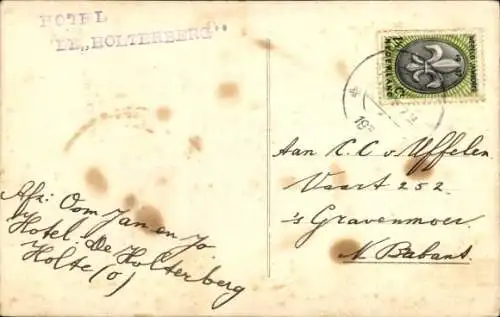 HOTEL
DE „HOLTERBERG"
NEDERLAND
Aan C. C. v Uffelen
Vaart 252.
's Gravenmoer.
N. Brabant.
Afz: Oom Jan en Jo
Hotel: De Holterberg
Holte (o)